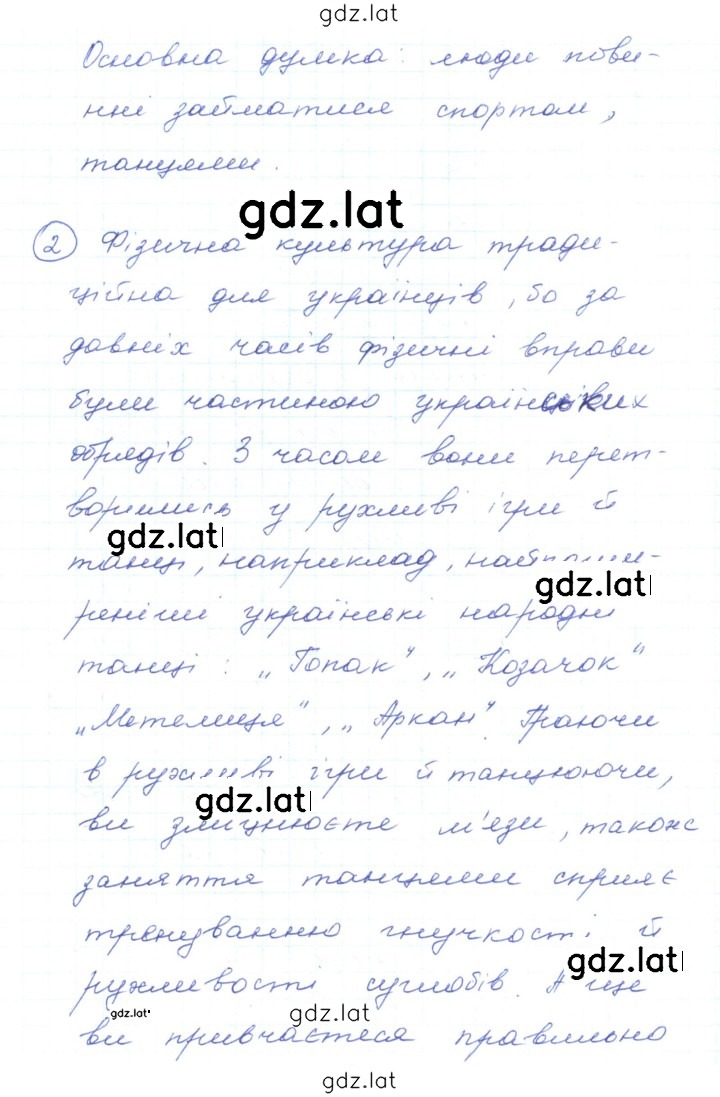 gdz.lat
Основна думка: люди пови-
нні займатися спортом,
танцями.
gdz.lat
2 Фізична культура тради-
ційна для українців, бо за
давніх часів фізичні вправи
були частиною українських
обрядів. З часом вони перет-
ворились у рухливі ігри й
gdz.lat
танці, наприклад, найпоши-
gdz.lat
реніші українські народні
танці: „Гопак", „Козачок"
„Метелиця", „Аркан". Граючи
в рухливі ігри й танцюючи,
gdz.lat
ви зміцнюєте м'язи, також
заняття танцями сприяє
тренуванню гнучкості й
gdz.lat
рухливості суглобів. А ще
gdz.lat
ви привчаєтеся правильно
gdz.lat